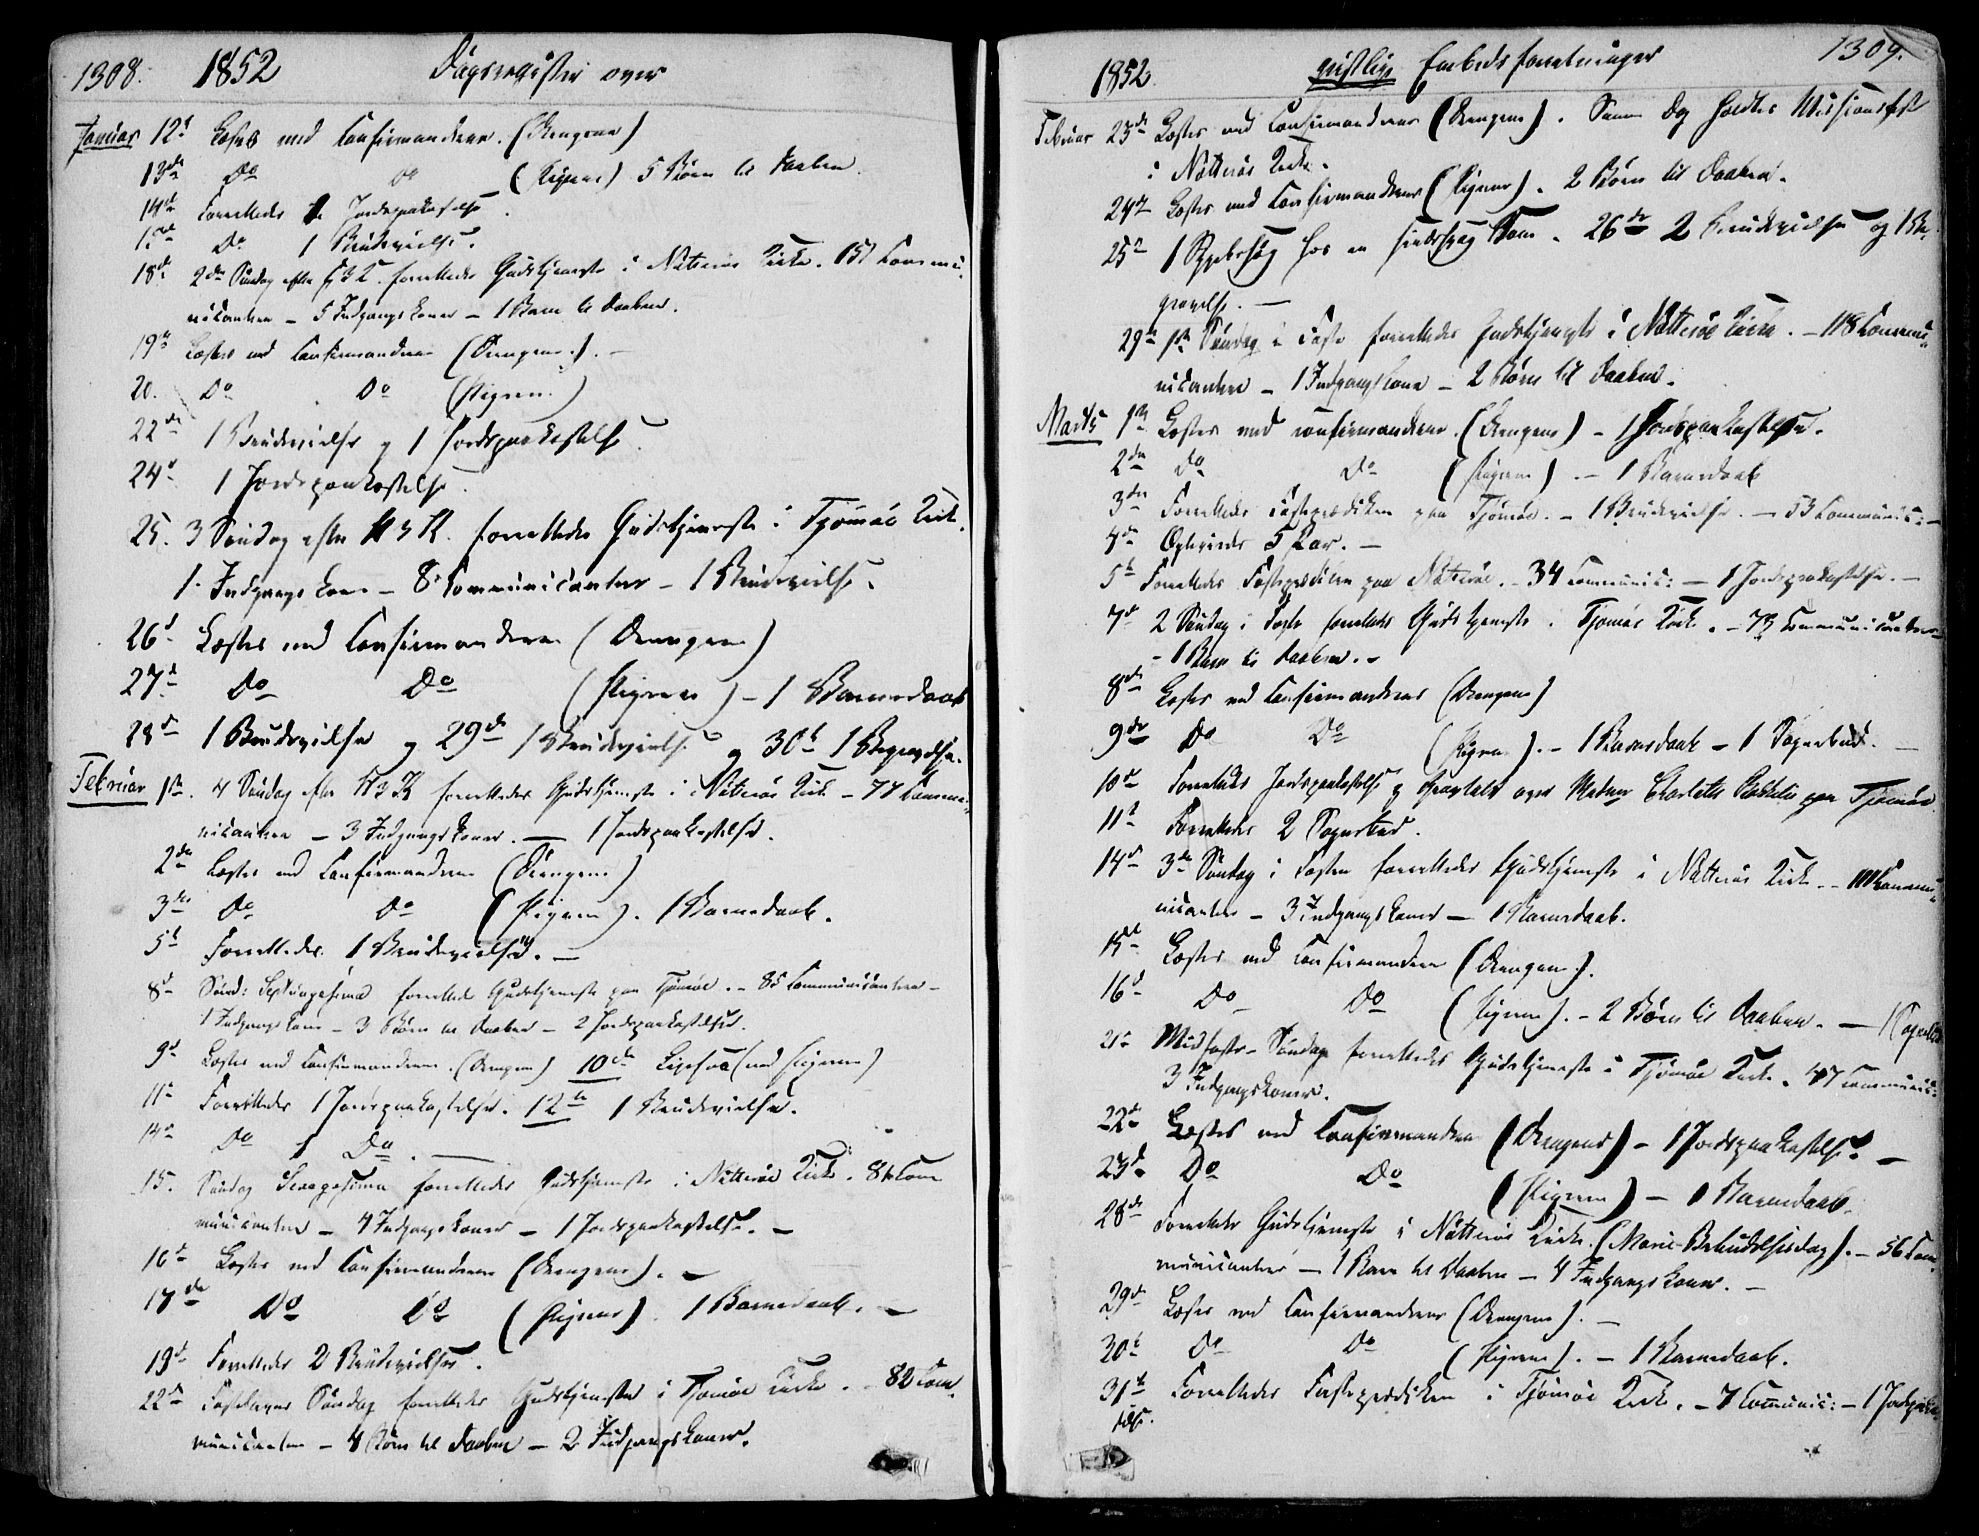 1308. 1852 Dagregister over
Januar 12t Læstes med Confirmanderne. (Drengene)
13de Do Do (Pigerne) 5 Børn til Daaben.
14de Forrettedes Jordpaakastelse
Do 1 Brudevielse.
18d 2den Søndag efter H3K. forrettedes Gudstjeneste i Nötteröe Kirke. 151 Commu-
nicanter – 5 Indgangskoner – 1 Barn til Daaben.
19de Læstes med Confirmanderne (Drengene). –
20. Do Do (Pigerne)
22de 1 Brudevielse og 1 Jordpaakastelse
24d 1 Jordpaakastelse.
25. 3 Søndag efter H3K. forrettedes Gudstjeneste i Tjömöe Kirk.
1. Indgangskone – 8 Communicanter – 1 Brudevielse.
26d Læstes med Confirmanderne (Drengene)
27d Do Do (Pigerne) – 1 Barnedaab
28d 1 Brudevielse og 29de 1 Brudevielse og 30t 1 Begravelse.
Februar 1ste. 4 Søndag efter H3K forrettedes Gudstjeneste i Nötteröe Kirke – 77 Commu-
nicanter – 3 Indgangskoner. – 1 Jordpaakastelse.
2den Læstes med Confirmanderne (Drengene)
3die Do Do (Pigerne). 1 Barnedaab.
5t Forrettedes 1 Brudevielse. –
8d Sönd: Septuagesima forrettede Gudstjeneste paa Tjömöe. – 85 Communicanter –
1 Indgangskone – 3 Börn til Daaben – 2 Jordpaakastelser.
9d Læstes med Confirmanderne (Drengene) 10de Ligesaa (med Pigerne)
11t Forrettedes 1 Jordpaakastelse. 12te 1 Brudevielse.
14d Do 1 Do. –
15. Søndag Sexagesima forrettedes Gudstjeneste i Nötteröe Kirke. 86 Com
municanter – 4 Indgangskoner – 1 Jordpaakastelse. –
16d Læstes med Confirmanderne (Drengene). –
17de Do Do (Pigerne). 1 Barnedaab. –
19d Forrettedes 2 Brudevielser.
22de Fastelavns Söndag forrettedes Gudstjeneste i Tjömöe Kirke. – 82 Com
municanter – 4 Børn til Daaben – 2 Indgangskoner.
1852. geistlige Embedsforretninger 1309.
Februar 23de Læstes med Confirmanderne (Drengene). Samme Dag holdtes Missionsfest
i Nötteröe Kirke.
24d Læstes med Confirmanderne (Pigerne). 2 Börn til Daaben.
25d 1 Sygebesøg hos en sindssyg Kone. 26de 2 Brudevielser og 1 Be-
gravelse. –
29de 1ste Søndag i Faste forrettedes Gudstjeneste i Nötteröe Kirke. – 118 Commu-
nicanter – 1 Indgangskone – 2 Börn til Daaben.
Marts 1ste Læstes med Confirmanderne (Drengene) – 1 Jordpaakastelse.
2den Do Do (Pigerne). – 1 Barnedaab
3die Forrettedes Fasteprædiken paa Tjömöe. – 1 Brudevielse. – 53 Communic: –
4d Oplevedes 5 Par. –
5t Forrettedes Fasteprædiken paa Nötteröe. – 34 Communic: – 1 Jordpaakastelse. –
7d 2 Søndag i Faste forrettedes Gudstjeneste i Tjömöe Kirke. – 73 Communicanter –
– 1 Barn til Daaben. –
8de Læstes med Confirmanderne (Drengene)
9de Do Do (Pigerne). – 1 Barnedaab – 1 Sognebud. –
10d Forrettedes Jordpaakastelse og over Madam Charlotte paa Tjömöe
11t Forrettedes 2 Sognebud.
14d 3die Søndag i Fasten forrettedes Gudstjeneste i Nötteröe Kirke. – 111 Commu-
nicanter – 3 Indgangskoner – 1 Barnedaab.
15d Læstes med Confirmanderne (Drengene).
16d Do Do (Pigerne). – 2 Börn til Daaben. – 1 Sognebud
21d Midfaste-Søndag forrettedes Gudstjeneste i Tjömöe Kirke. 47 Communic:
3 Indgangskoner.
22d Læstes med Confirmanderne (Drengene) – 1 Jordpaakastelse. –
23d Do Do (Pigerne) – 1 Barnedaab.
28de Forrettedes Gudstjeneste i Nötteröe Kirke. (Marie-Bebudelsesdag). – 56 Com
municanter – 1 Barn til Daaben – 4 Indgangskoner. –
29de Læstes med Confirmanderne (Drengene). –
30t Do Do (Pigerne). – 1 Barnedaab.
31t Forrettedes Fasteprædiken i Tjömöe Kirke. – 7 Communic: – 1 Jordpaaka-
stelse.